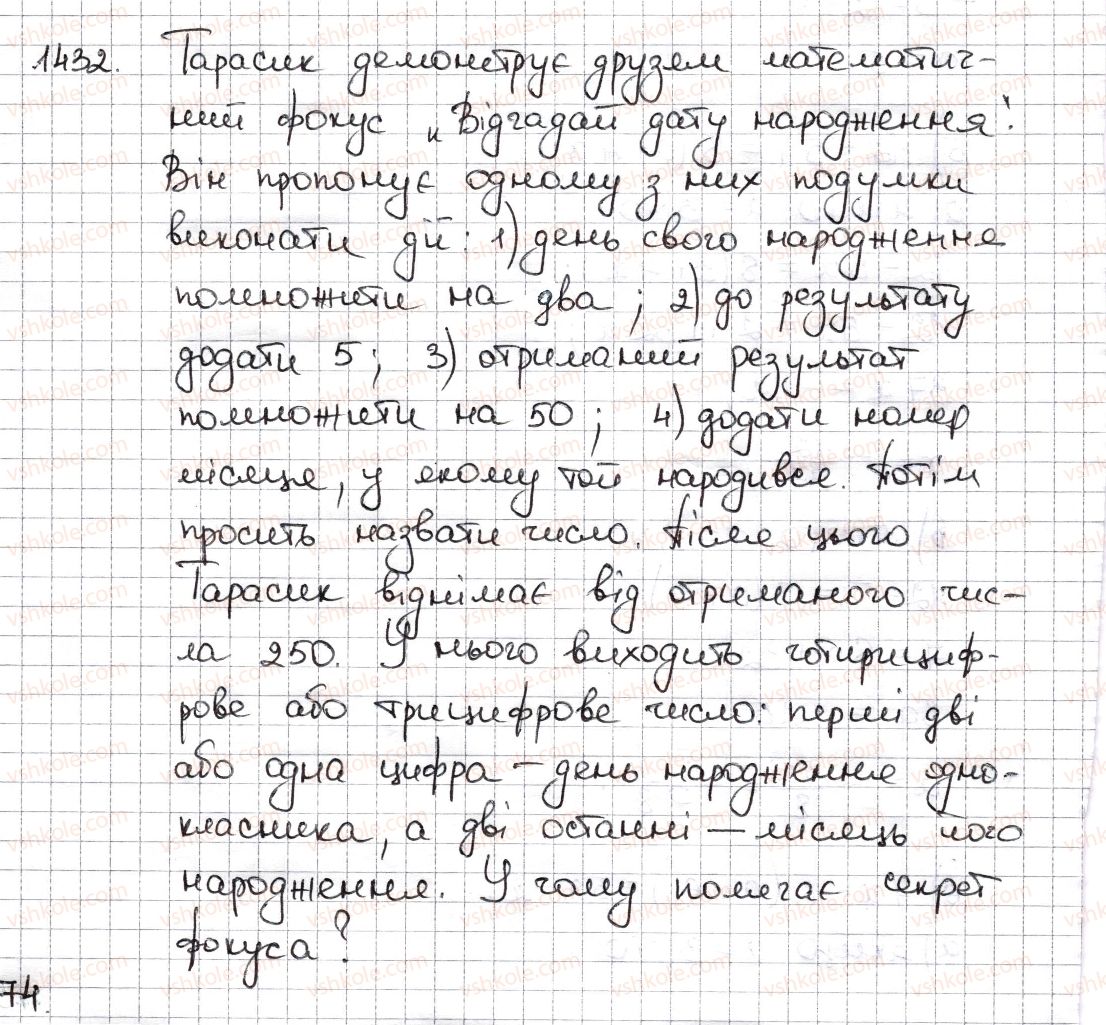 1432. Тарасик демонструє друзям математич-
ний фокус „Відгадай дату народження".
Він пропонує одному з них подумки
виконати дії: 1) день свого народження
помножити на два; 2) до результату
додати 5; 3) отриманий результат
помножити на 50; 4) додати номер
місяця, у якому той народився. Потім
просить назвати число. Після цього
Тарасик віднімає від отриманого чис-
ла 250. У нього виходить чотирициф-
рове або трицифрове число: перші дві
або одна цифра - день народження одно-
класника, а дві останні - місяць його
народження. У чому полягає секрет
фокуса?
74.